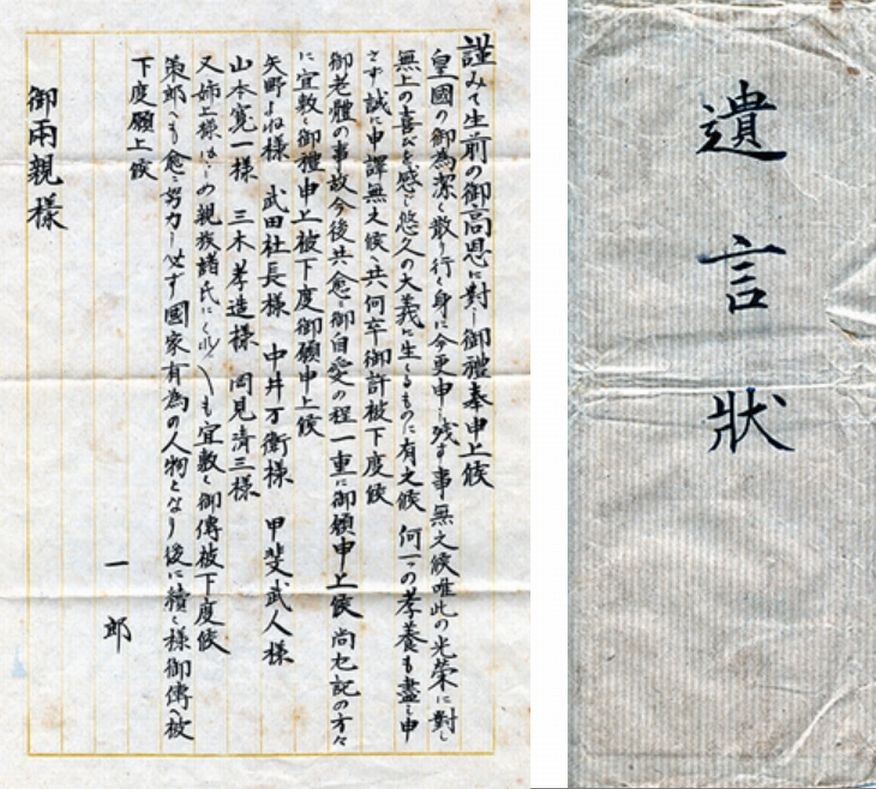 謹みて生前の御高恩に對し御禮奉申上候
皇國の御為潔く散り行く身に今更申し残す事無之候唯此の光栄に對し
無上の喜びを感じ悠久の大義に生くるものに有之候 何一つの孝養も盡し申
さず誠に申譯無之候へ共何卒御許被下度候
御老體の事故今後共愈々御自愛の程一重に御願申上候 尚左記の方々
に宜敷く御禮申上被下度御願申上候
矢野よね様 武田社長様 中井万衛様 甲斐武人様
山本寛一様 三木孝造様 岡見清三様
又姉上様はじめ親族諸氏にくれ〲も宜敷く御傳被下度候
策郎へも愈々努力し必ず國家有為の人物となり後に續く様御傳へ被
下度願上候
一郎
御両親様
遺言狀